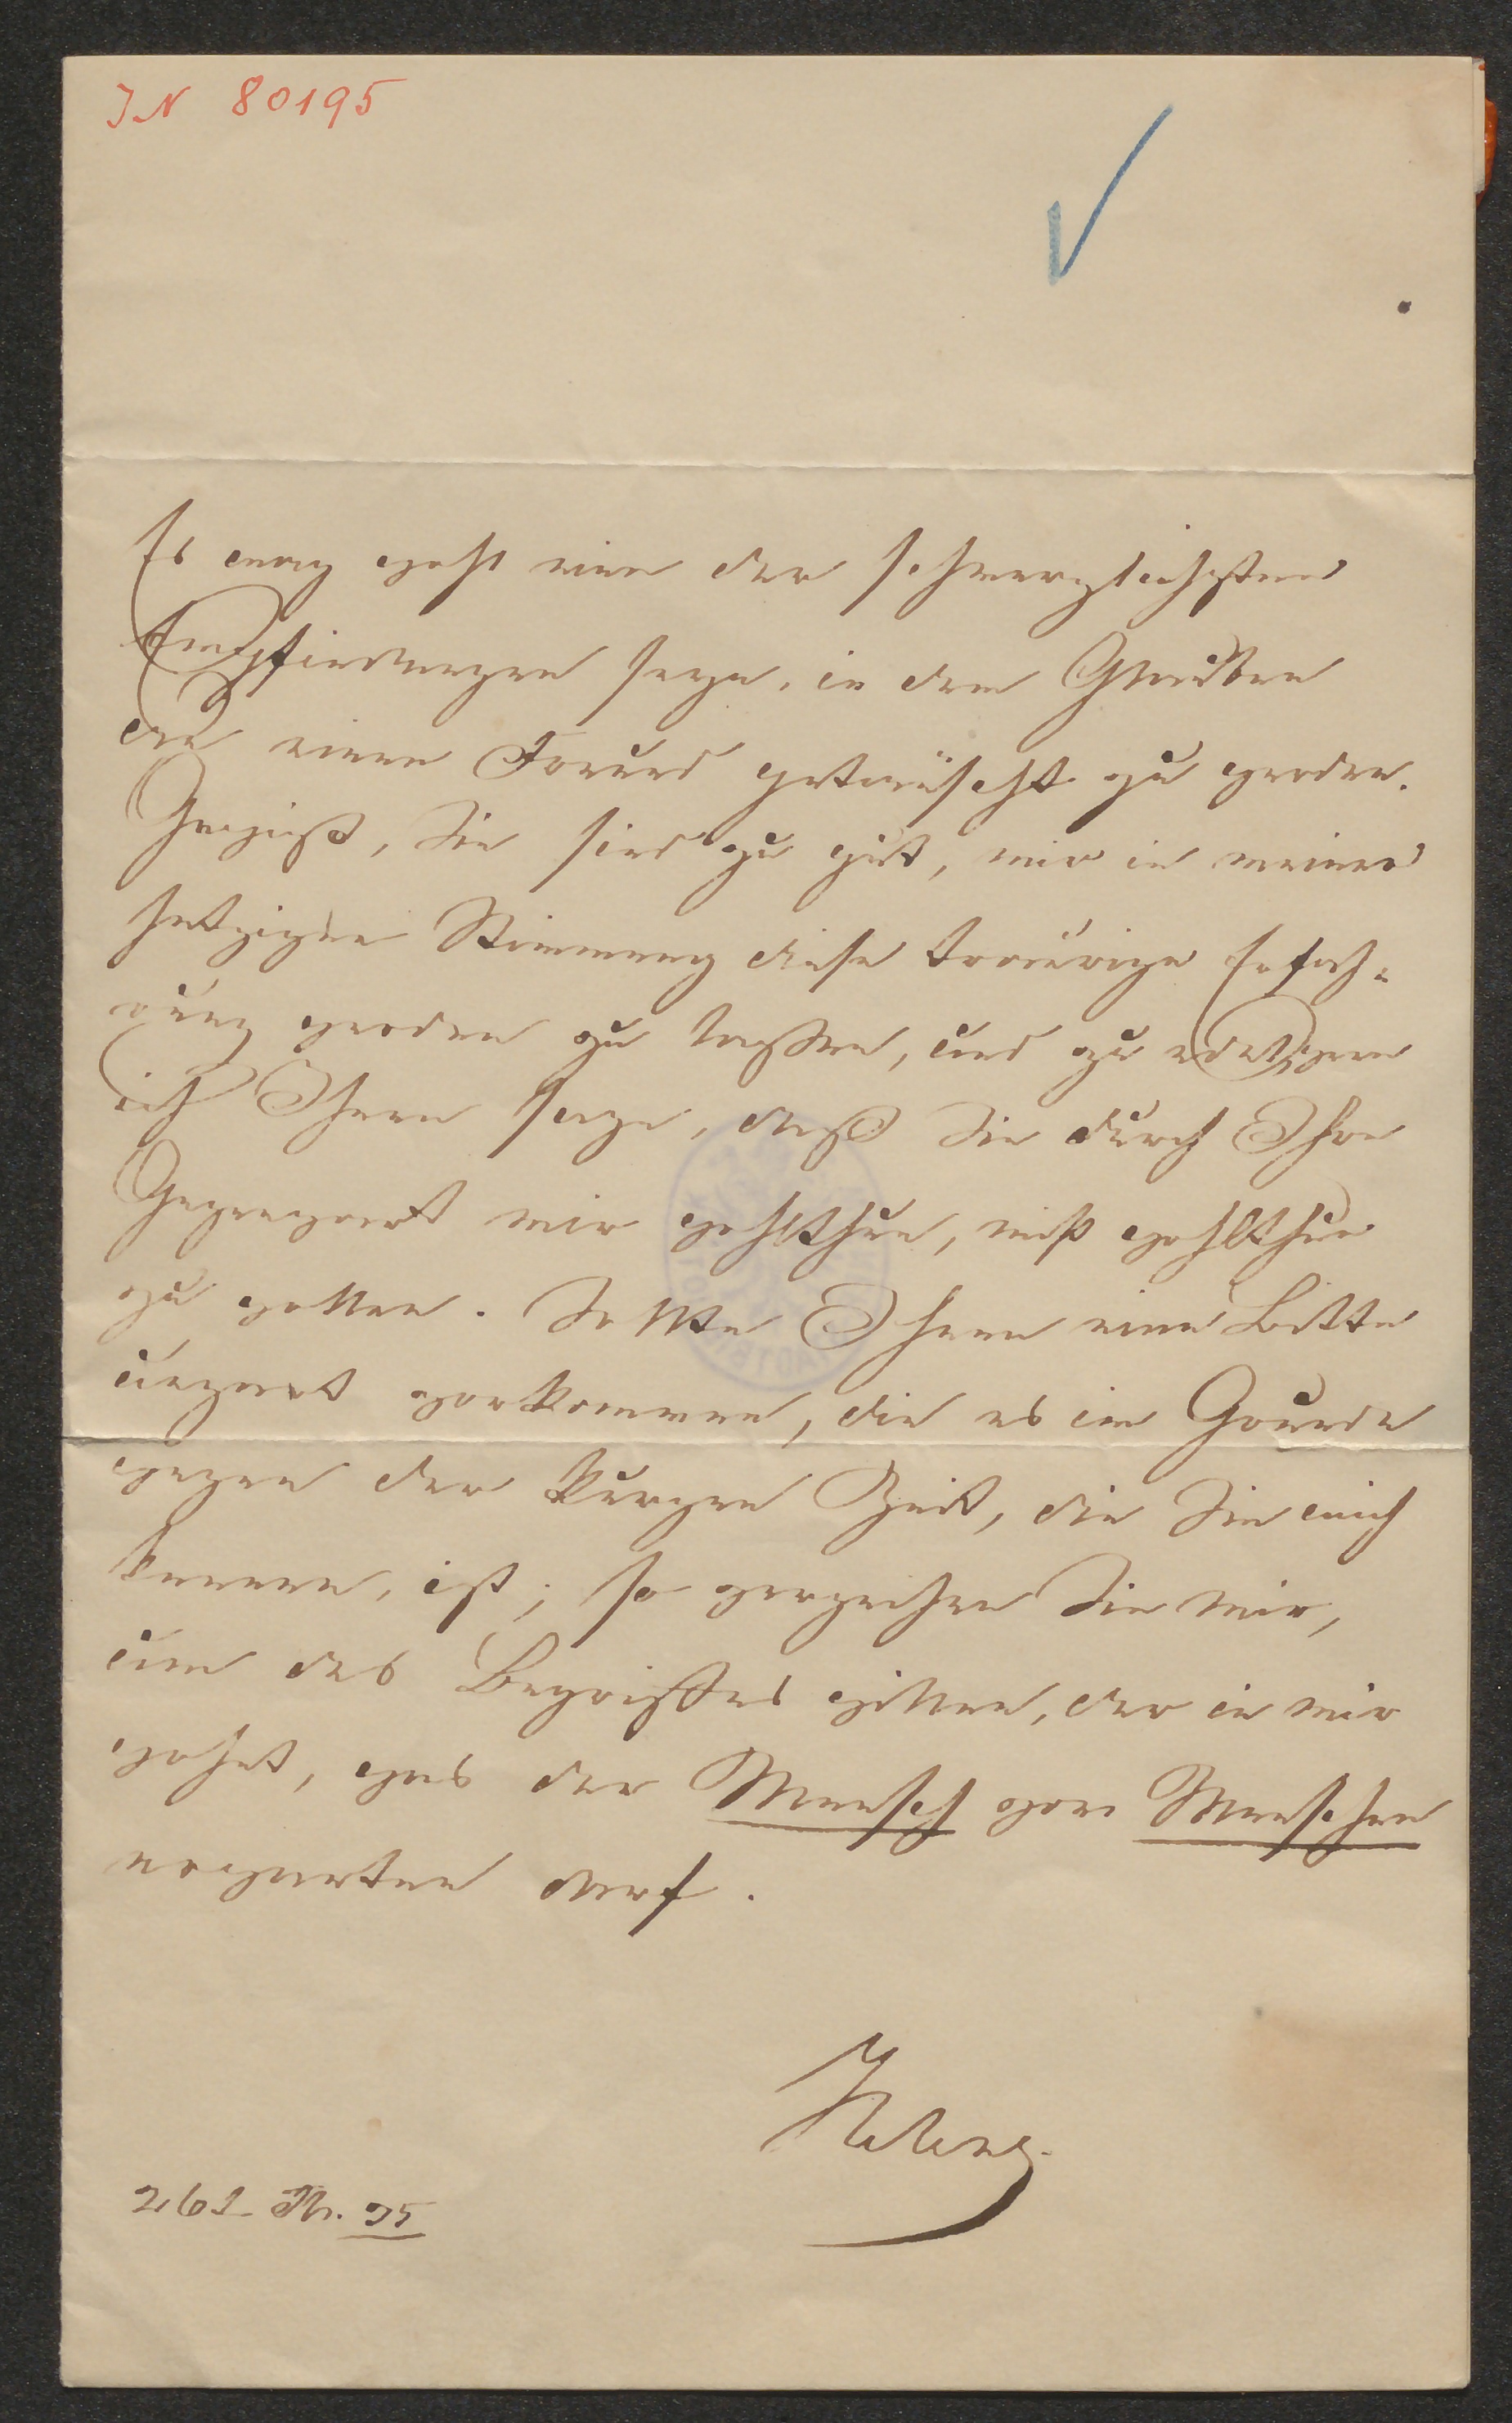 IN 80195
Es mag wohl eine der schmerzlichsten
Empfindungen seyn, in dem Glauben
an einen Freund getäuscht zu werden.
Gewiß, Sie sind zu gut, mir in meiner
jetzigen Stimmung diese traurige Erfah-
rung werden zu lassen, und zu edel, wenn
ich Ihnen sage, daß Sie durch Ihre
Gegenwart mir wohlthun, nicht wohlthun
zu wollen. Sollte Ihnen eine Bitte
unzart vorkommen, die es im Grunde
wegen der kurzen Zeit, die Sie mich
kennen, ist; so verzeihen Sie mir,
um des Begriffes willen, der in mir
wohnt, was der Mensch vom Menschen
erwarten darf.
261 Nr. 35